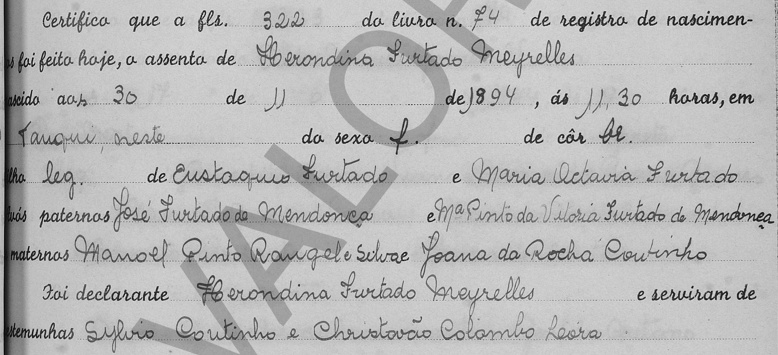 Certifico que a fls. 322 do livro n. 74 de registro de nascimen-
foi feito hoje, o assento de Herondina Furtado Meyrelles
aos 30 de 11 de 1894, ás 11,30 horas, em
neste do sexo f. de côr br.
leg. de Eustaquio Furtado e Maria Octavia Furtado
paternos José Furtado de Mendonça e Mª Pinto da Vitoria Furtado de Mendonça
maternos Manoel Pinto Rangel e Silva e Joana da Rocha Coutinho
Foi declarante Herondina Furtado Meyrelles e serviram de
Sylvio Coutinho e Christovão Colombo
VALOR